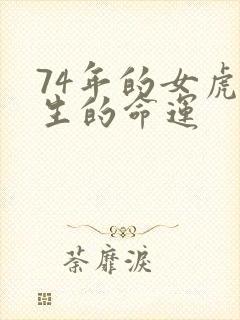 74年的女虎
生的命运
荼靡淚